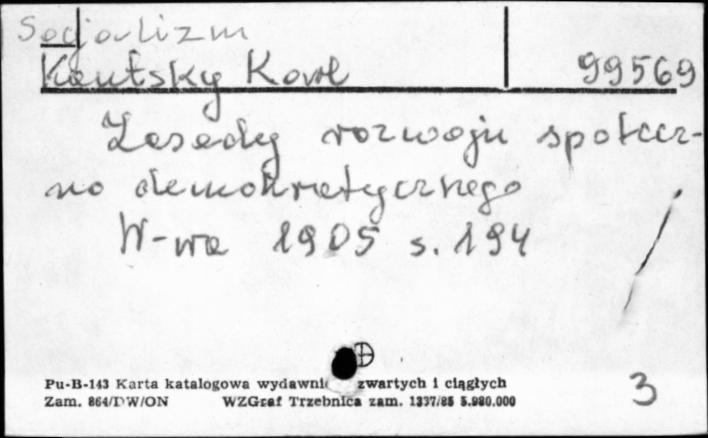 Socjalizm
Kautsky Karl 99569
Zasady rozwoju społecz-
no demokratycznego
W-wa 1905 s. 194
Pu-B-143 Karta katalogowa wydawni zwartych i ciągłych
Zam. 864/DW/ON WZGraf Trzebnica zam. 1337/85 5.980.000
3